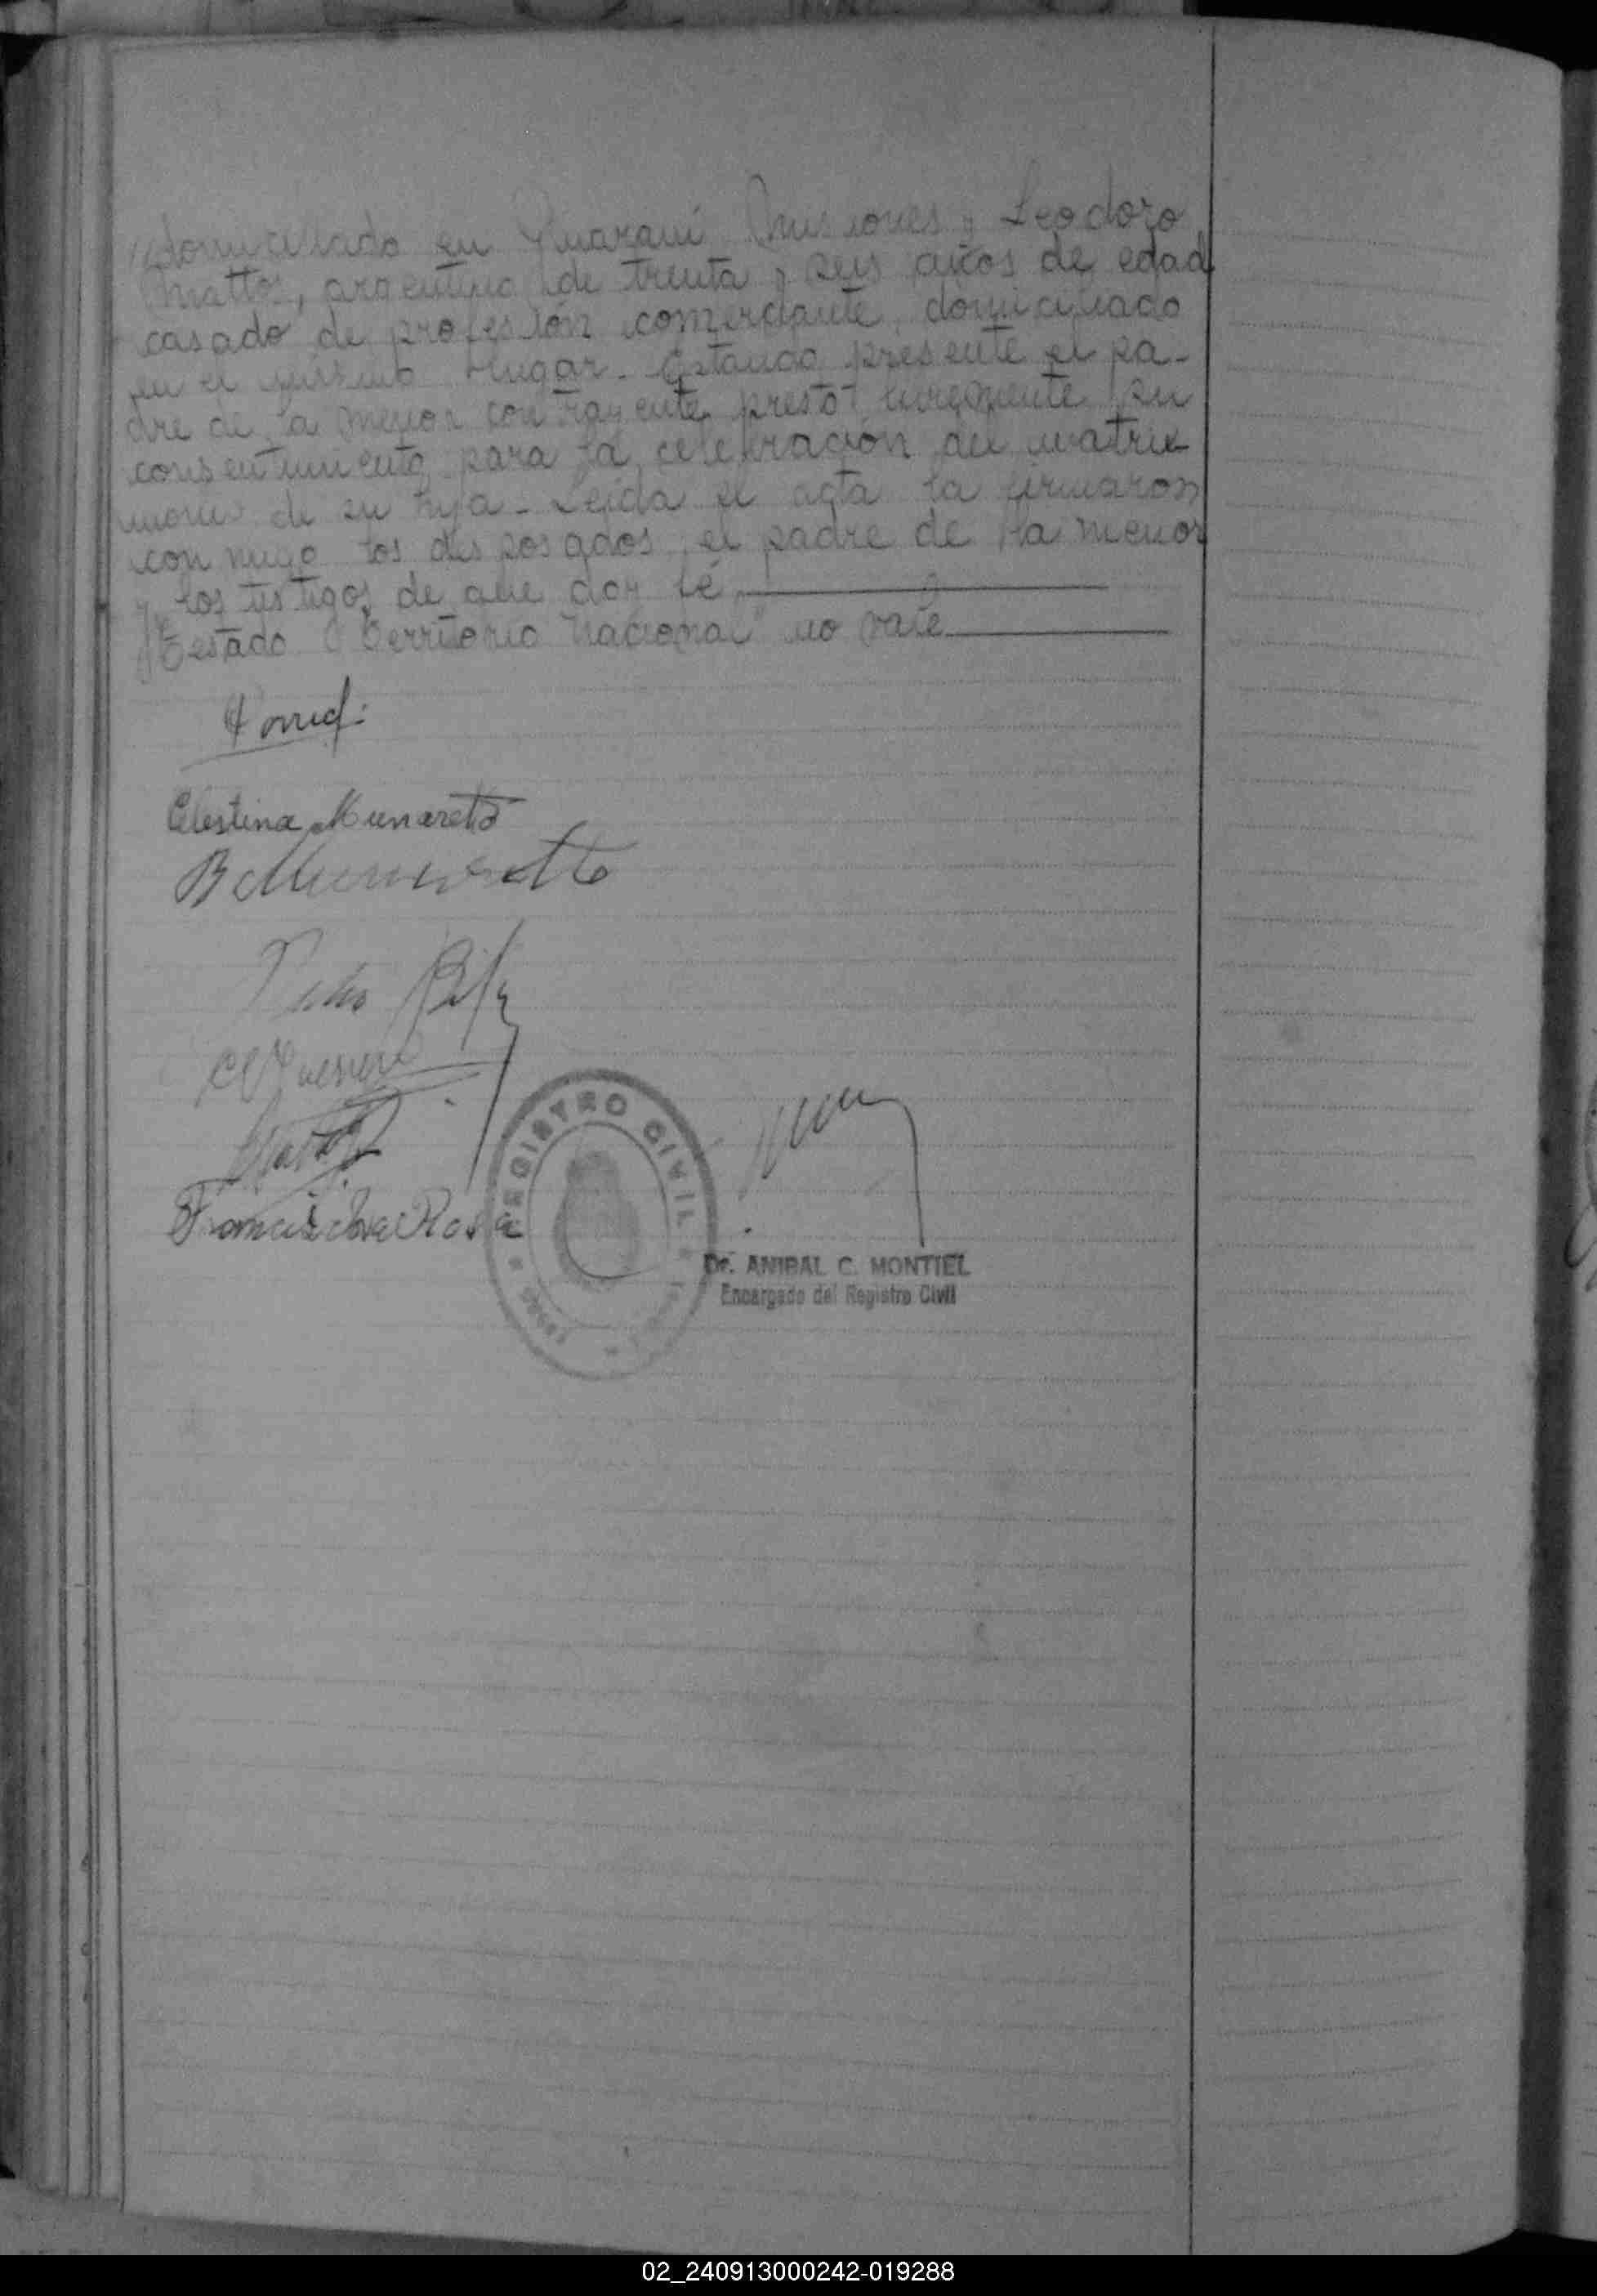 //domiciliado en Guaraní Misiones y Leodoro
Mattos, argentino de treinta y seis años de edad
casado de profesión comerciante, domiciliado
en el mismo lugar - Estando presente el pa-
dre de la menor contrayente prestó libremente su
consentimiento para la celebración del matri-
monio de su hija - Leída el acta la firmaron
conmigo los desposados, el padre de la menor
y los testigos de que doy fé
Testado "Territorio Nacional" no vale
Celestina Munaretto
B Munaretto
Pedro
Mattos
Francisco Rosa
REGISTRO CIVIL
Dr. ANIBAL C. MONTIEL
Encargado del Registro Civil
02_240913000242-019288